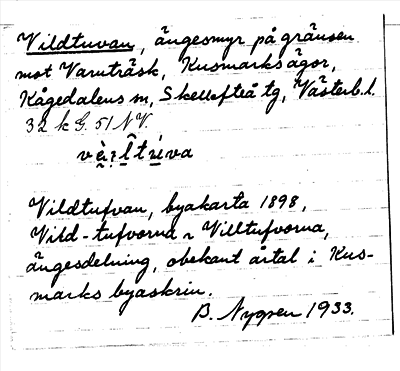 Vildtuvan, ängesmyr på gränsen
mot Varuträsk, Kusmarks ägor,
Kågedalens m, Skellefteå tg, Västerb. l.
32 k G. 51 NV.
Vildtufvan, byakarta 1898,
Vild-tufvorna n Villtufvorna,
ängesdelning, obekant årtal i Kus-
marks byaskrin.
B. Nygren 1933.